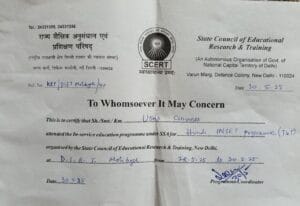 Tel: 24331356, 24332356
राज्य शैक्षिक अनुसंधान एवं
प्रशिक्षण परिषद्
SCERT
State Council of Educational
Research & Training
(An Autonomous Organisation of Govt. of
National Capital Territory of Delhi)
Varun Marg, Defence Colony, New Delhi - 110024
Date 30.5.25
To Whomsoever It May Concern
This is to certify that Sh./Smt/ Km
attended the In-service education programme under SSA for Hindi INSET programme (TGT)
organised by the State Council of Educational Research & Training, New Delhi.
at D.I.E.T. Moti bagh From 28.5.25 to 30.5.25
Date 30.5.25
Programme Coordinator